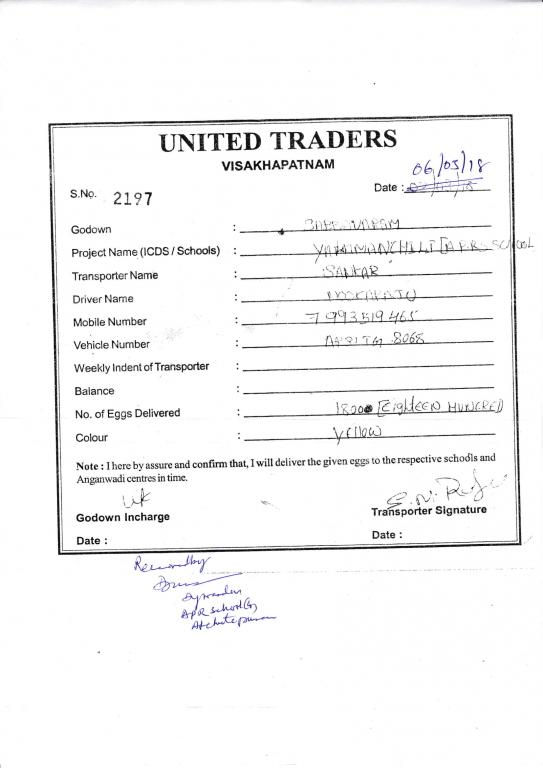 UNITED TRADERS
VISAKHAPATNAM
06/03/18
S.No. 2197 Date :
Godown :
Project Name (ICDS / Schools) : YALAMANCHILI [A.P.R.SCHOOL
Transporter Name : SANKAR
Driver Name :
Mobile Number : 7993519465
Vehicle Number : 8068
Weekly Indent of Transporter :
Balance :
No. of Eggs Delivered : 1800 [Eighteen HUNDRED]
Colour : Yellow
Note : I here by assure and confirm that, I will deliver the given eggs to the respective schools and
Anganwadi centres in time.
Godown Incharge Transporter Signature
Date : Date :
APR School (G)